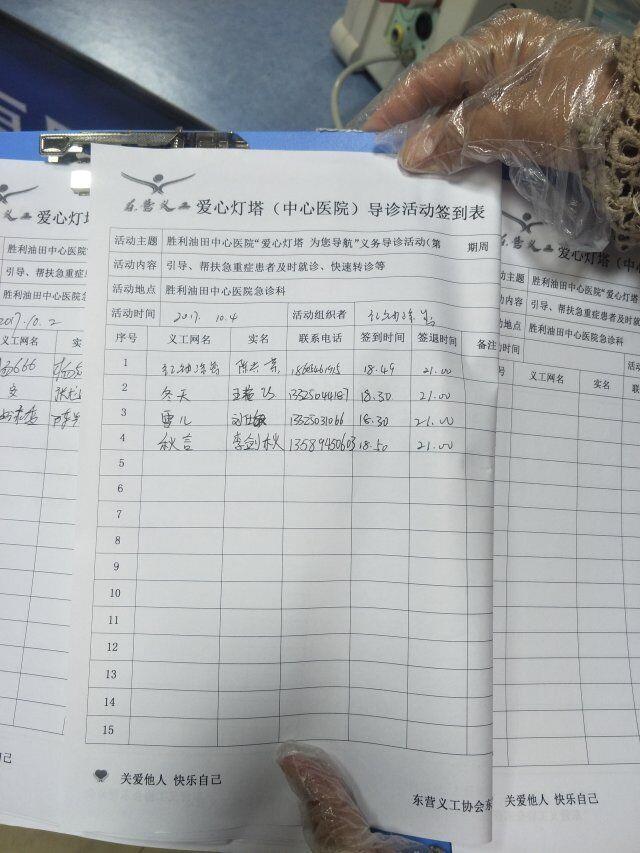 东营义工 爱心灯塔（中心医院）导诊活动签到表
活动主题 胜利油田中心医院“爱心灯塔 为您导航”义务导诊活动（第 期周
活动内容 引导、帮扶急重症患者及时就诊、快速转诊等
活动地点 胜利油田中心医院急诊科
活动时间 2017. 10.4 活动组织者
序号 义工网名 实名 联系电话 签到时间 签退时间 备注
1 18.49 21.00
2 冬天 13325044187 18.30 21.00
3 雪儿 13325031066 18.30 21.00
4 秋言 李剑秋 13589450603 18.50 21.00
5
6
7
8
9
10
11
12
13
14
15
关爱他人 快乐自己
东营义工协会东
爱心灯
胜利油田中
引导、帮扶急
胜利油田中心
2017.10.2
义工网名 实
666
自己
东营义工 爱心灯塔（
动主题 胜利油田中心医院“爱心灯塔
动内容 引导、帮扶急重症患者及时就
动地点 胜利油田中心医院急诊科
动时间
号 义工网名 实名
关爱他人 快乐自己